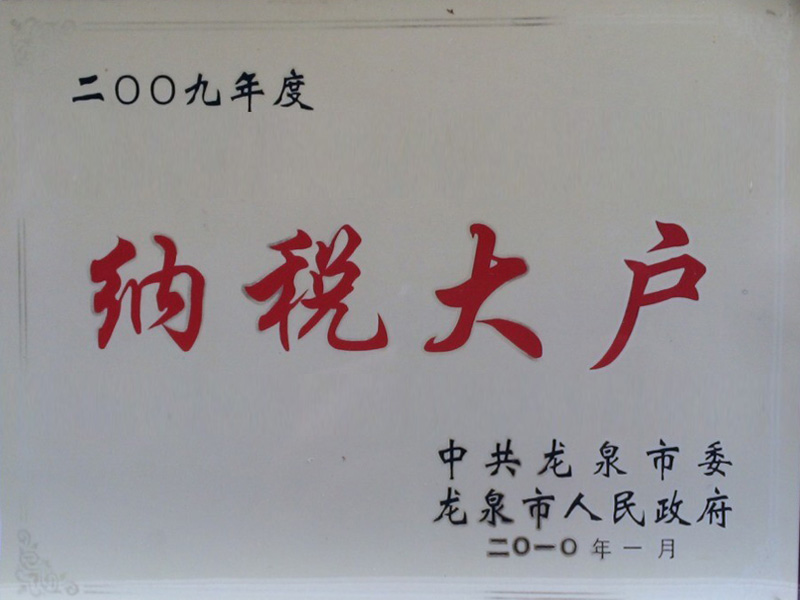 二〇〇九年度
纳税大户
中共龙泉市委
龙泉市人民政府
二〇一〇年一月